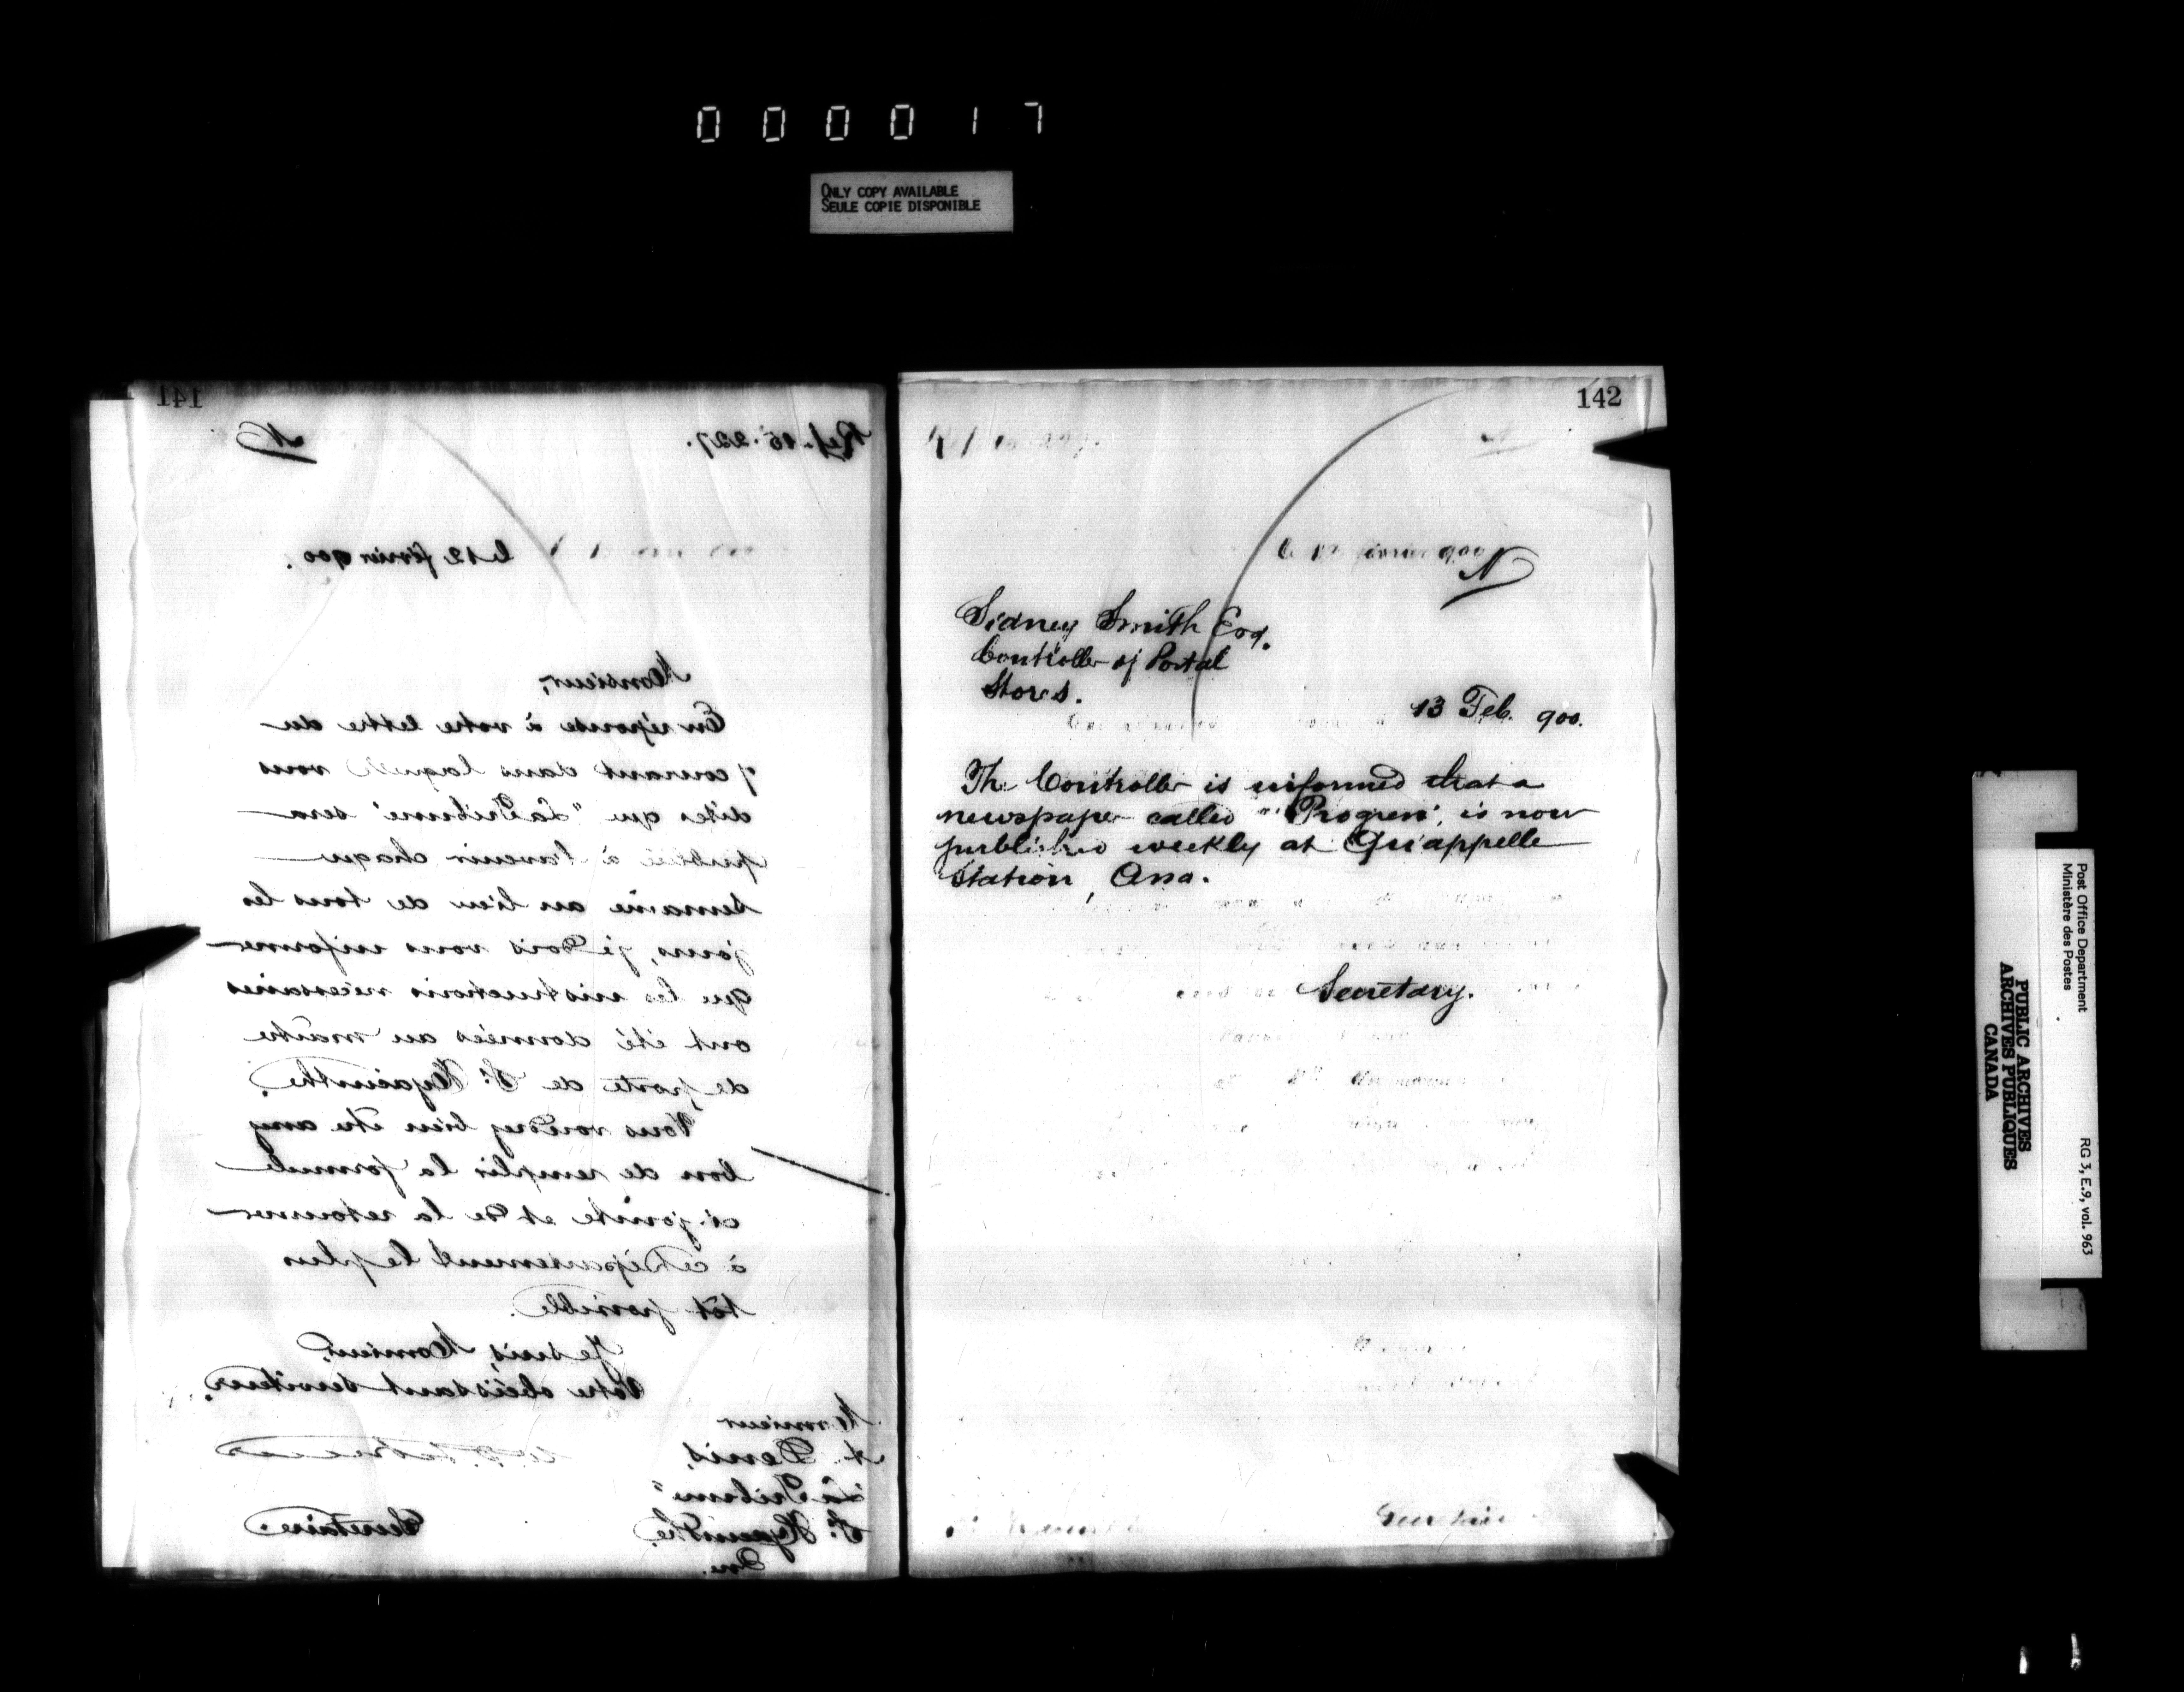 000017
ONLY COPY AVAILABLE
SEULE COPIE DISPONIBLE
141
Ref. 15.227.
N
le 12 février 900.
Monsieur,
En réponse à votre lettre du
courant dans laquelle vous
dites que "La Tribune" sera
publié à l'avenir chaque
semaine au lieu de tous les
jours, je dois vous informer
que les instructions nécessaires
ont été données au maître
de poste de St. Hyacinthe.
Vous voudrez bien être assez
bon de remplir la formule
ci-jointe et de la retourner
à ce Département le plus
tôt possible.
Je suis, Monsieur,
Votre obéissant serviteur,
Monsieur
A. Denis,
"La Tribune"
St. Hyacinthe,
Que.
Secrétaire.
142
N
Sidney Smith Esq.
Controller of Postal
Stores.
13 Feb. 900.
The Controller is informed that a
newspaper called "Progress", is now
published weekly at Qu'appelle
Station, Assa.
Secretary.
Post Office Department
Ministère des Postes
RG 3, E.9, vol. 963
PUBLIC ARCHIVES
ARCHIVES PUBLIQUES
CANADA